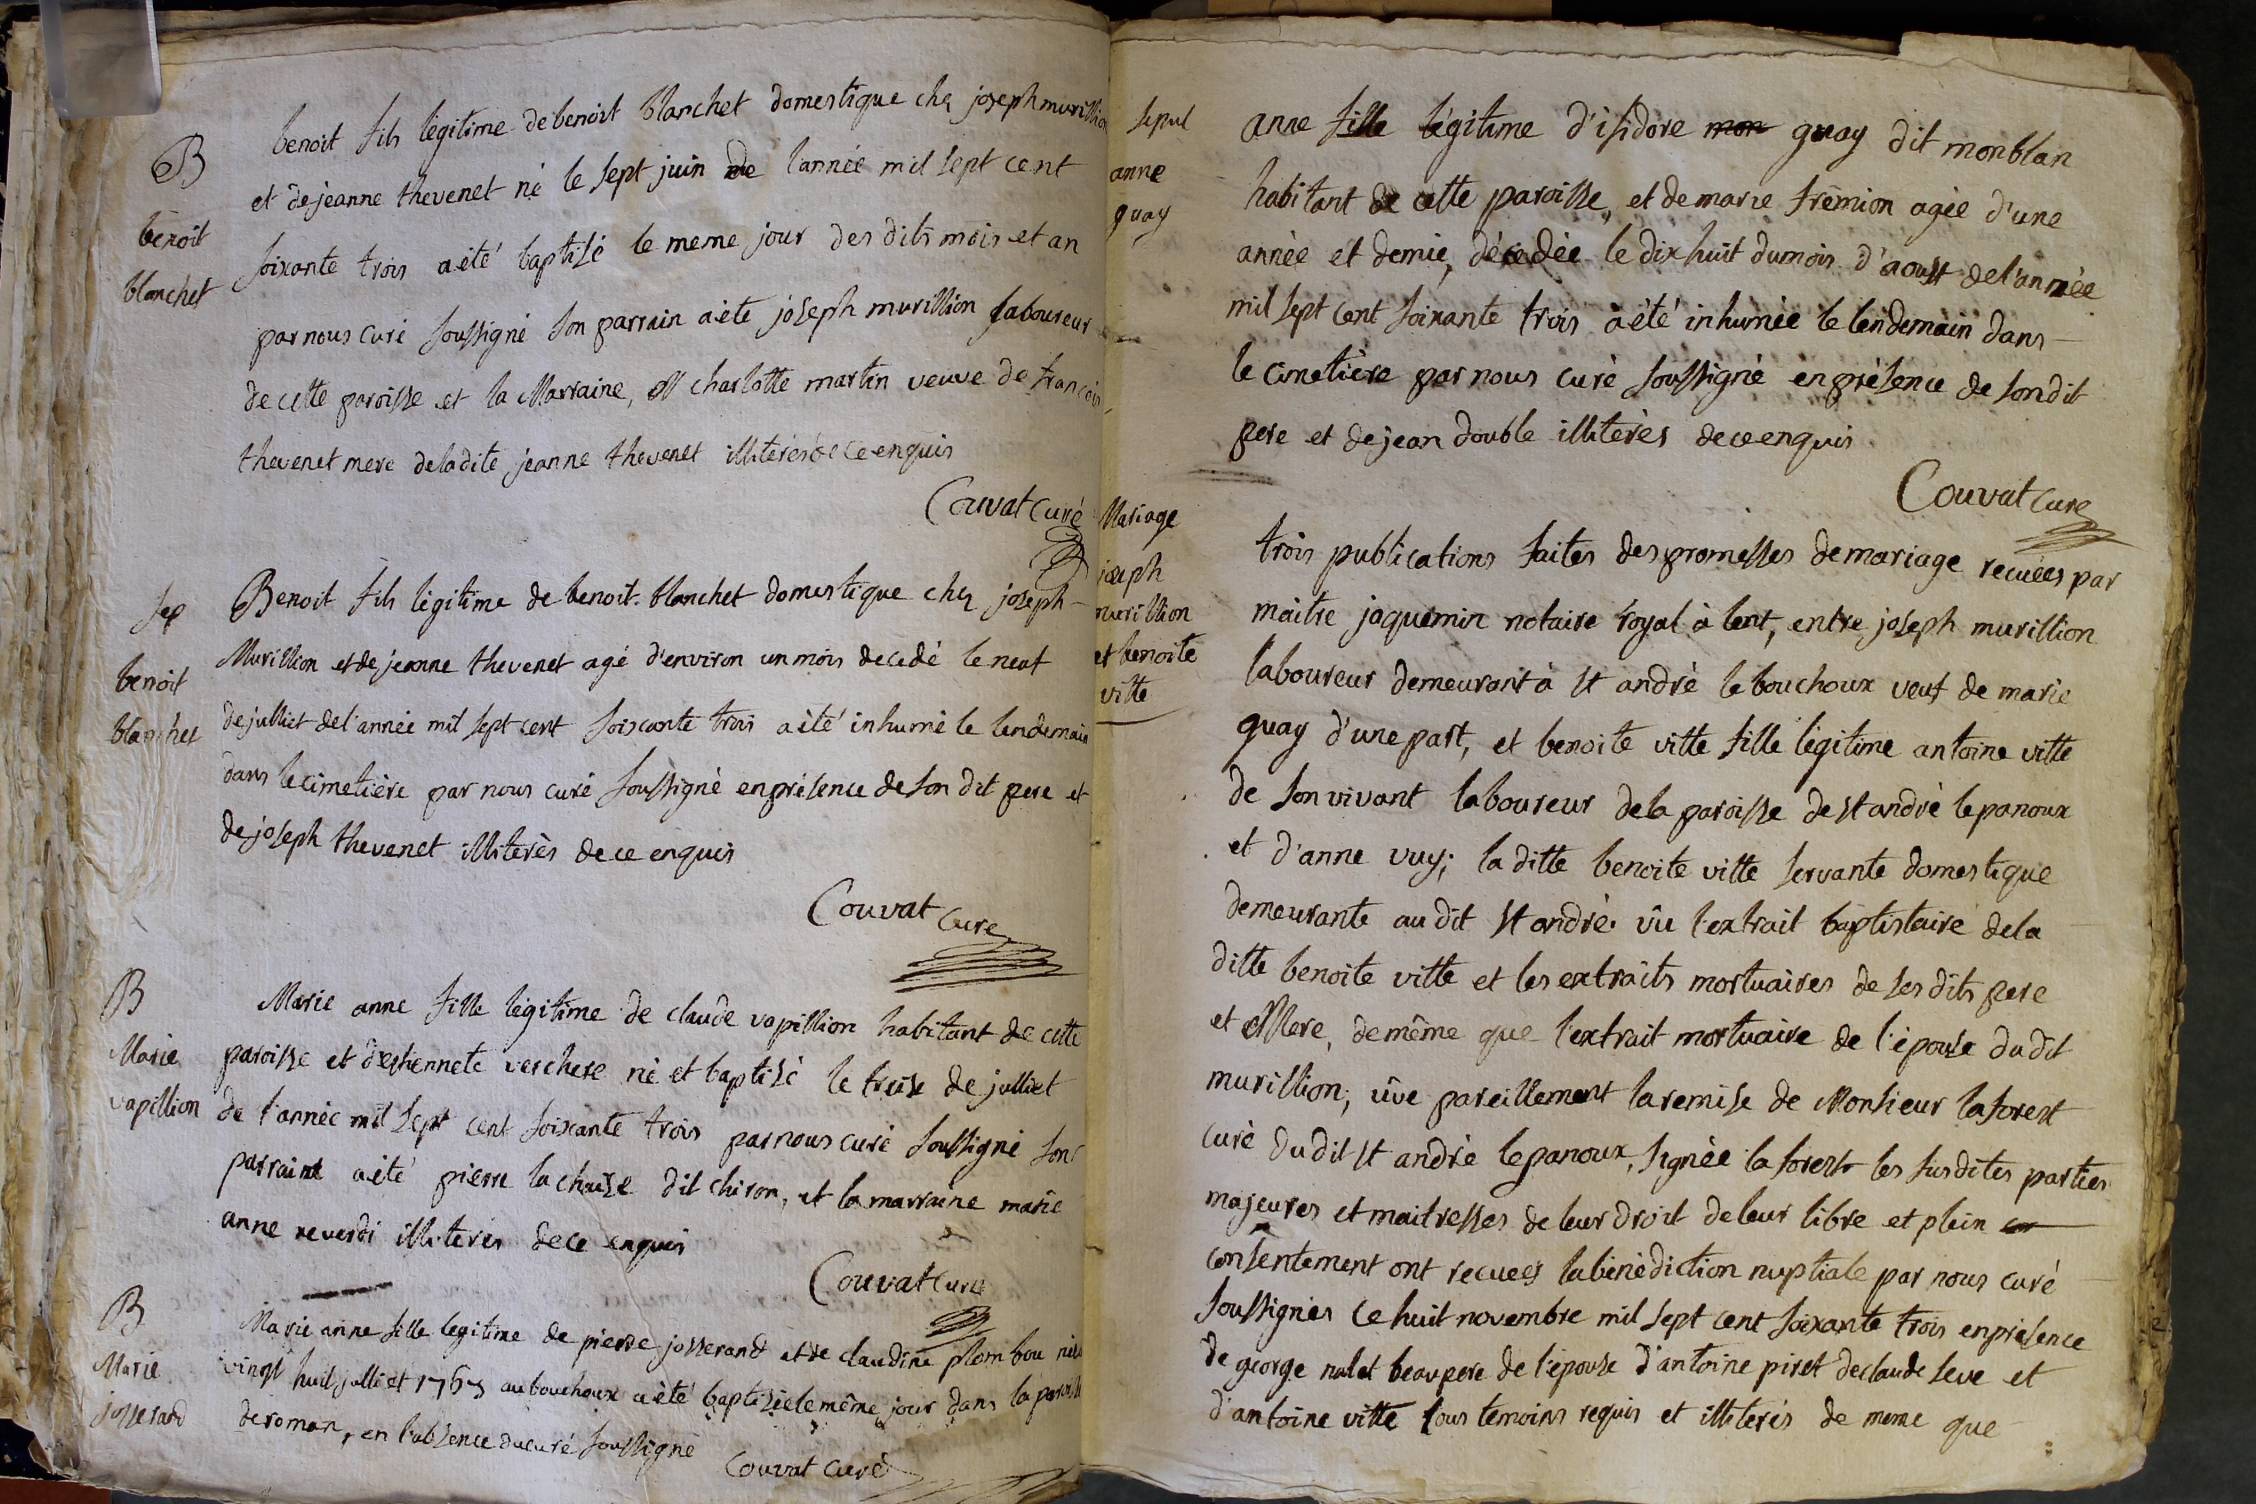 B
benoit
blanchet
benoit fils légitime de benoit blanchet domestique chez joseph murillion
et de jeanne thevenet né le sept juin de l'année mil sept cent
soixante trois a été baptisé le meme jour des dits mois et an
par nous curé soussigné son parrain a été joseph murillion laboureur
de cette paroisse et la Marraine, charlotte martin veuve de francois
thevenet mere de la dite jeanne thevenet illiterés de ce enquis
Couvat Curé
sep
benoit
blanchet
Benoit fils légitime de benoit blanchet domestique chez joseph
Murillion et de jeanne thevenet agé d'environ un mois decedé le neuf
de julliet de l'année mil sept cent soixante trois a été inhumé le lendemain
dans le cimetière par nous curé soussigné en présence de son dit pere et
de joseph thevenet illiterès de ce enquis
Couvat Cure
B
Marie
vapillion
Marie anne fille légitime de claude vapillion habitant de cette
paroisse et d'estiennete verchere né et baptisé le treise de julliet
de l'année mil sept cent soixante trois par nous curé soussigné son
parraint a été pierre la chaise dit chiron, et la marraine marie
anne reverdi illiterés de ce enquis
Couvat Curé
B
Marie
josserand
Marie anne fille legitime de pierre josserand et de claudine plombou née
vingt huit julliet 1763 au bouchoux a été baptisée le même jour dans la paroisse
de roman, en l'absence du curé soussigné
Couvat Curé
sepul
anne
guay
anne fille légitime d'isidore mon guay dit monblan
habitant de cette paroisse, et de marie frémion agée d'une
année et demie, décedée le dix huit du mois d'aoust de l'année
mil sept cent soixante trois a été inhumée le lendemain dans
le cimetière par nous curé soussigné en présence de son dit
pere et de jean double illiterès de ce enquis
Couvat Cure
Mariage
joseph
murillion
et benoite
vitte
trois publications faites des promesses de mariage recuées par
maitre jaquemin notaire royal à lent, entre joseph murillion
laboureur demeurant à st andré le bouchoux veuf de marie
guay d'une part, et benoite vitte fille légitime antoine vitte
de son vivant laboureur de la paroisse de st andré le panoux
et d'anne vuy; la ditte benoite vitte servante domestique
demeurante au dit st andré. vû l'extrait baptistaire de la
ditte benoite vitte et les extraits mortuaires de ses dits pere
et Mere, de même que l'extrait mortuaire de l'épouse du dit
murillion; vûe pareillement la remise de Monsieur laforest
curé du dit st andré le panoux, signée laforest les susdites parties
majeures et maitresses de leur droit de leur libre et plein con
consentement ont recuées la bénédiction nuptiale par nous curé
soussignés ce huit novembre mil sept cent soixante trois en présence
de george nalet beaupere de l'épouse d'antoine piret de claude seve et
d'antoine vitte tous temoins requis et illiterés de meme que